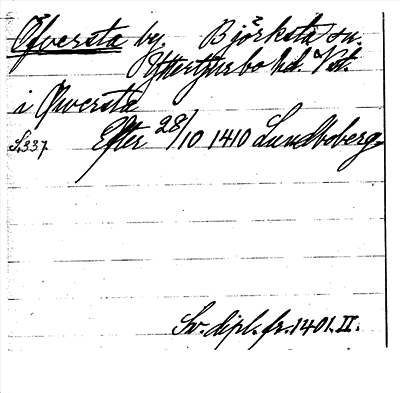 Öfversta by Björksta sn.
Yttertjurbo hd. Vstm.
i Øwersta
S.337. Efter 28/10 1410 Lundboberg
Sv. dipl. fr. 1401. II.